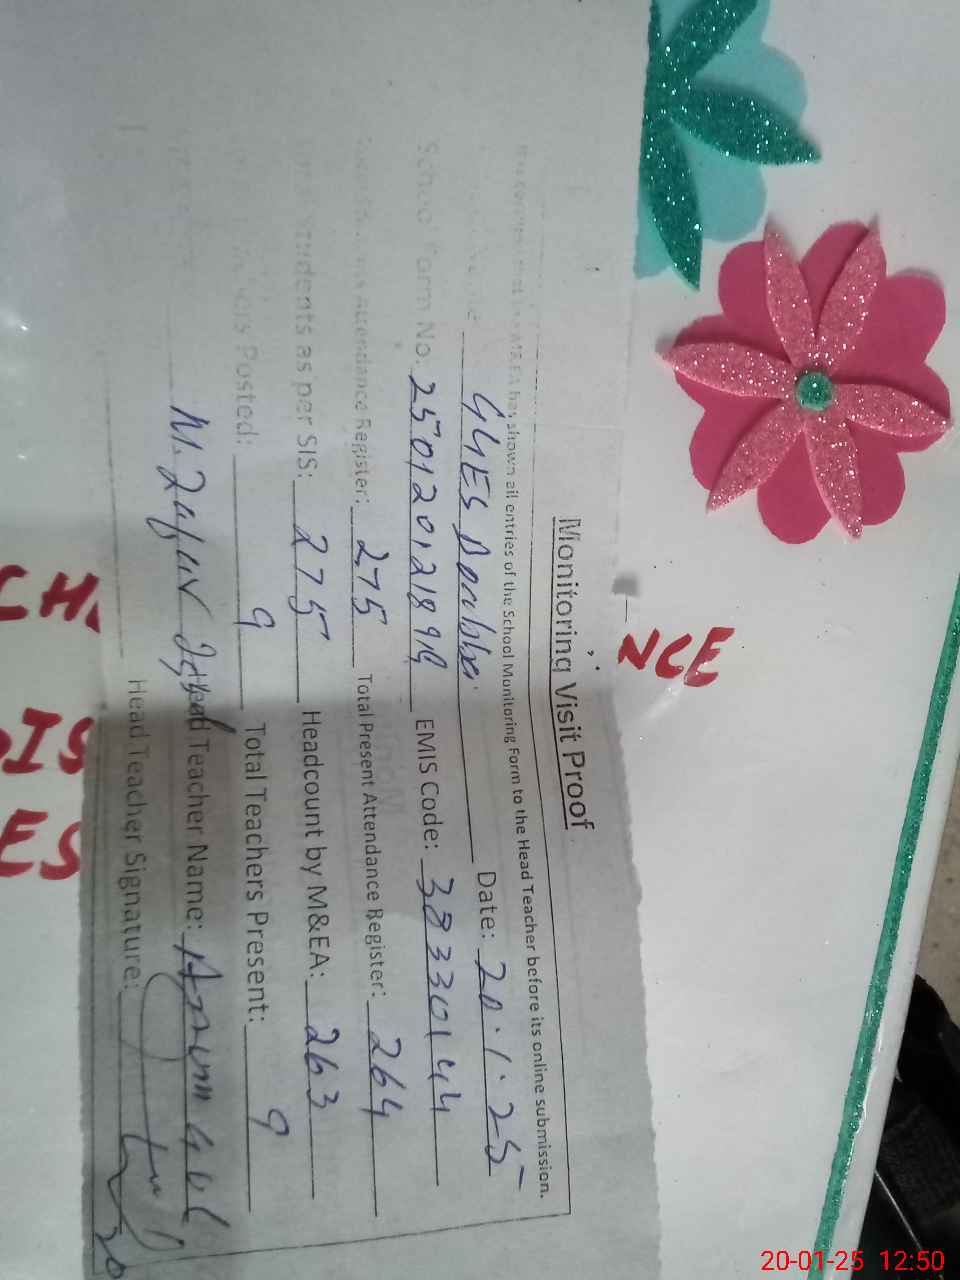 Monitoring Visit Proof
has shown all entries of the School Monitoring Form to the Head Teacher before its online submission.
GGES Date: 20.1.25
School Form No. 25012012189 EMIS Code: 38330144
Attendance Register: 275 Total Present Attendance Register: 264
students as per SIS: 275 Headcount by M&EA: 263
Posted: 9 Total Teachers Present: 9
M. Zafar Iqbal Head Teacher Name: Anum Gul
Head Teacher Signature:
NCE
CH
IS
ES
20-01-25 12:50